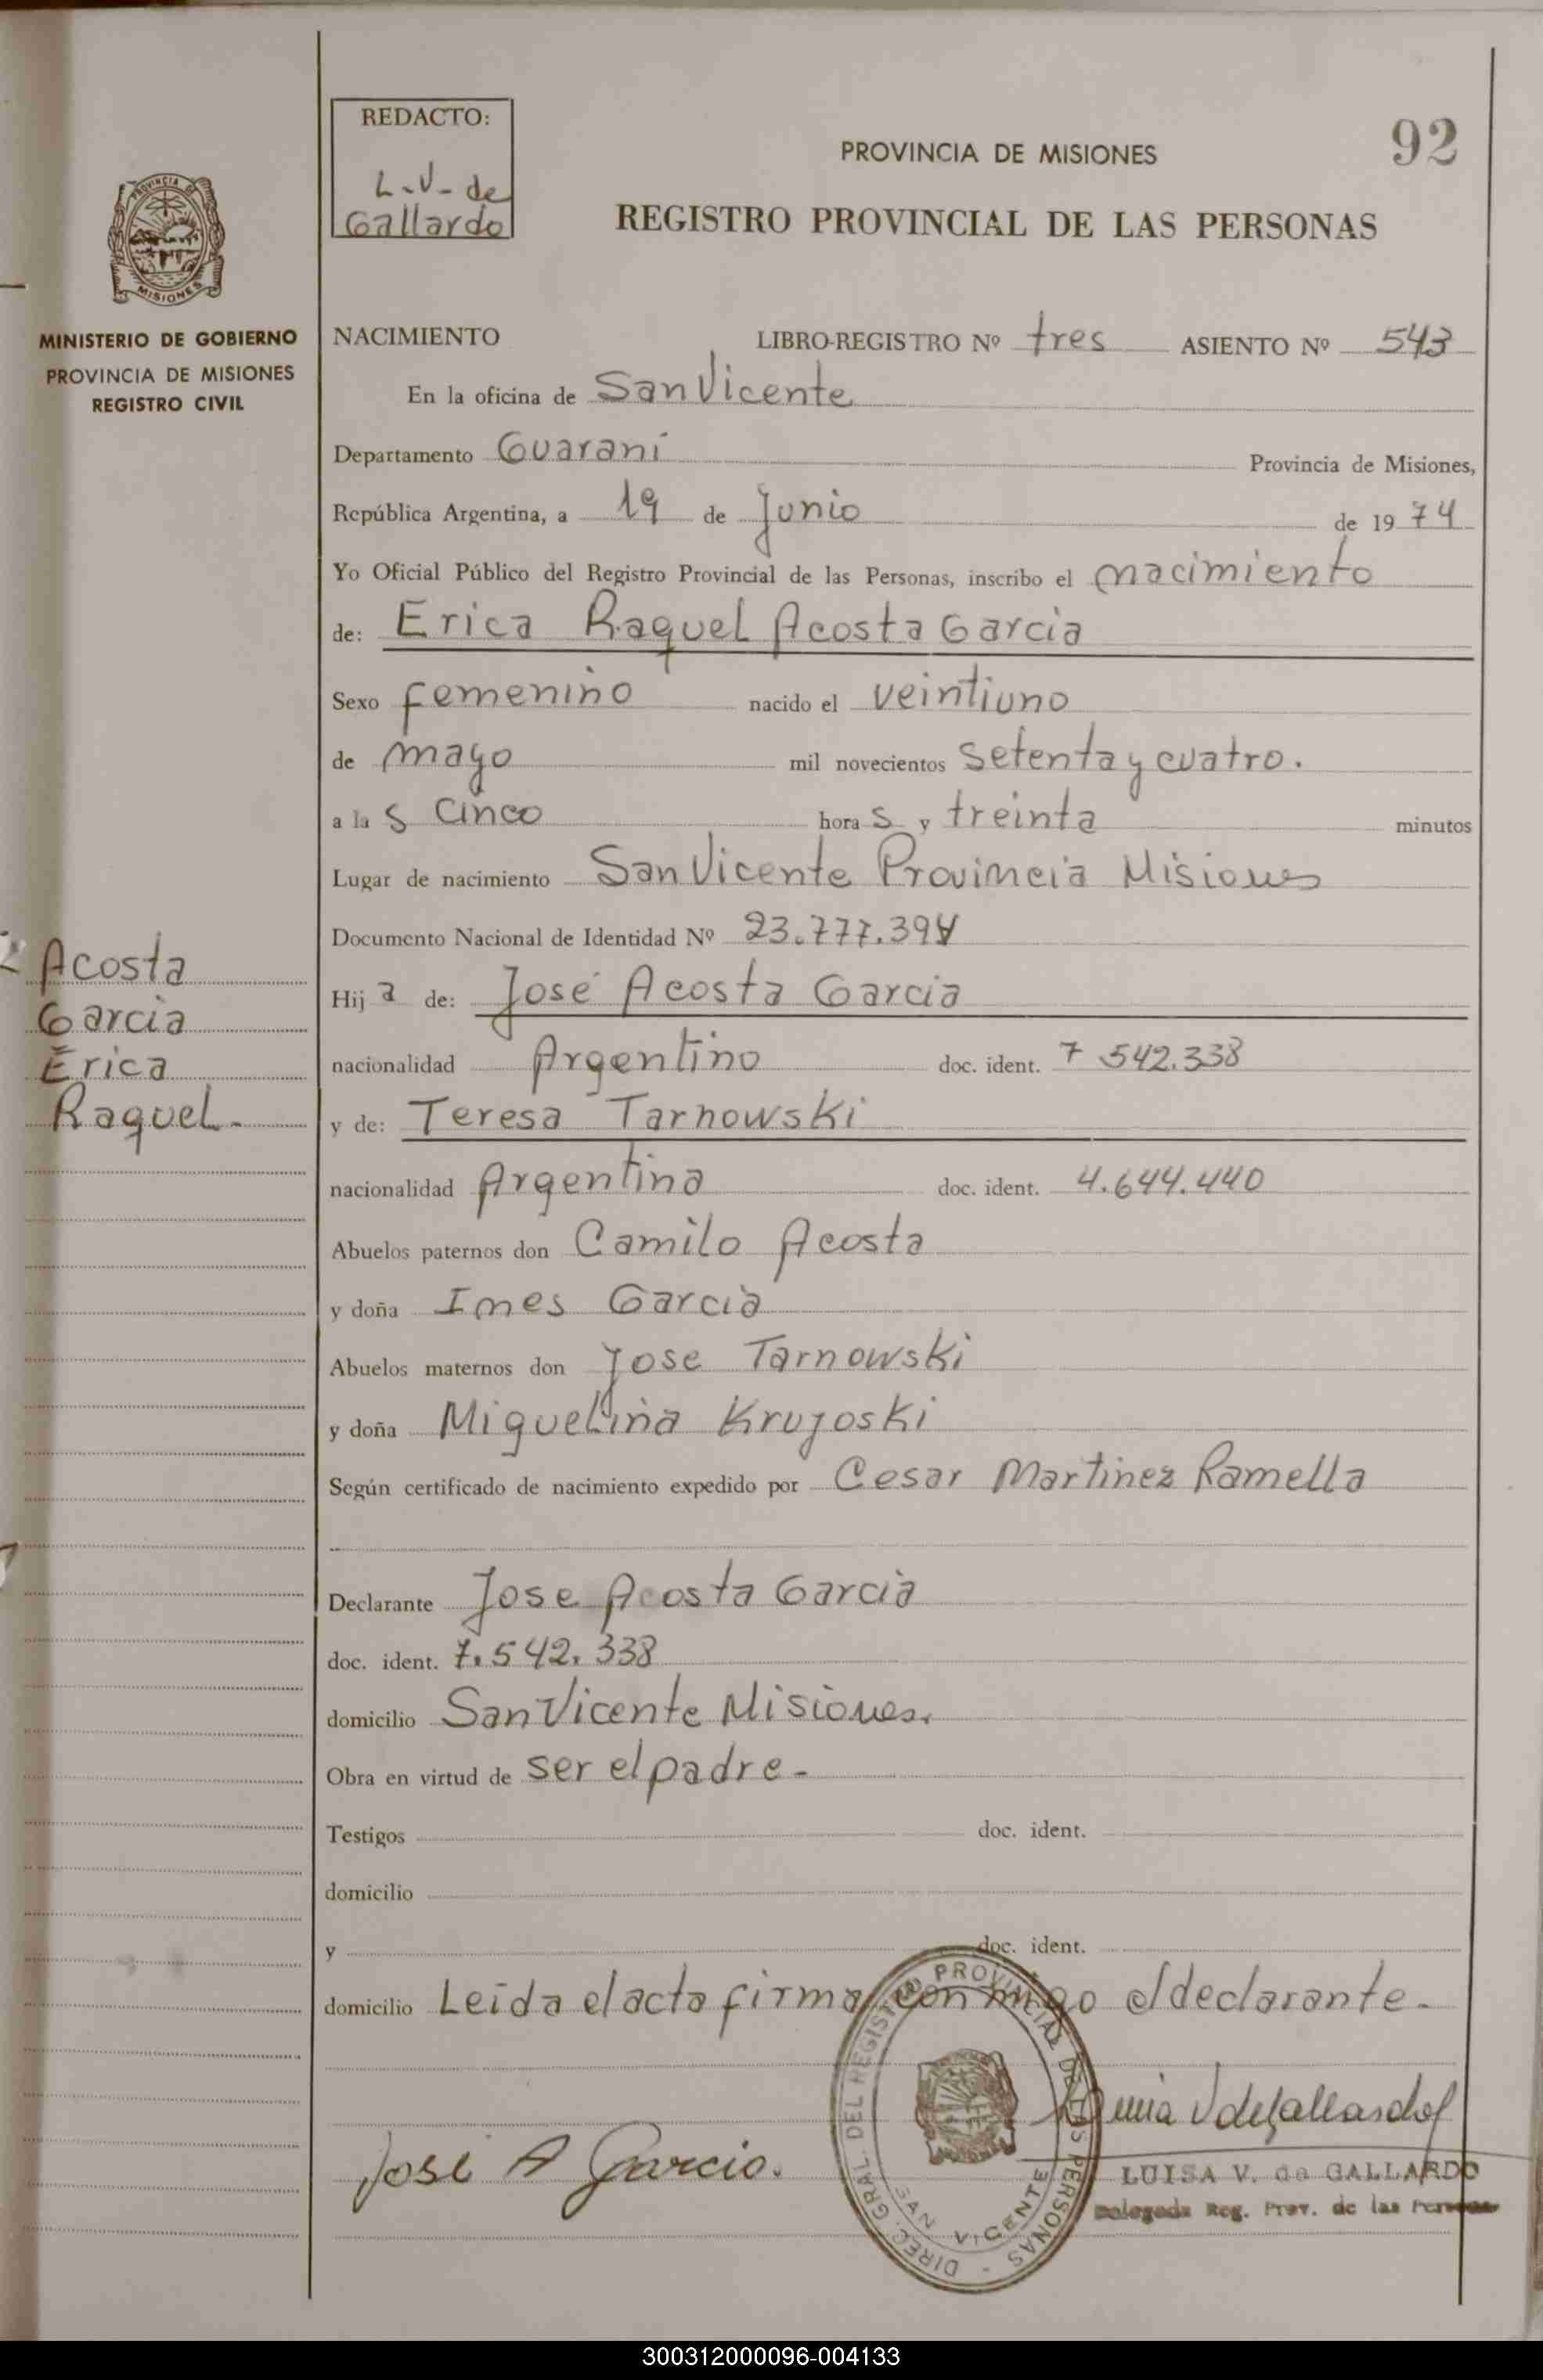 REDACTO:
L.V. de
Gallardo
92
PROVINCIA DE MISIONES
REGISTRO PROVINCIAL DE LAS PERSONAS
PROVINCIA DE
MISIONES
MINISTERIO DE GOBIERNO
PROVINCIA DE MISIONES
REGISTRO CIVIL
NACIMIENTO LIBRO-REGISTRO Nº tres ASIENTO Nº 543
En la oficina de San Vicente
Departamento Guaraní Provincia de Misiones,
República Argentina, a 19 de Junio de 1974
Yo Oficial Público del Registro Provincial de las Personas, inscribo el nacimiento
de: Erica Raquel Acosta Garcia
Sexo femenino nacido el veintiuno
de mayo mil novecientos setenta y cuatro.
a las cinco horas y treinta minutos
Lugar de nacimiento San Vicente Provincia Misiones
Documento Nacional de Identidad Nº 23.777.394
Acosta
Garcia
Erica
Raquel.
Hija de: José Acosta Garcia
nacionalidad Argentino doc. ident. 7 542.338
y de: Teresa Tarnowski
nacionalidad Argentina doc. ident. 4.644.440
Abuelos paternos don Camilo Acosta
y doña Ines Garcia
Abuelos maternos don Jose Tarnowski
y doña Miguelina Krujoski
Según certificado de nacimiento expedido por Cesar Martinez Ramella
Declarante Jose Acosta Garcia
doc. ident. 7.542.338
domicilio San Vicente Misiones.
Obra en virtud de ser el padre-
Testigos doc. ident.
domicilio
y doc. ident.
domicilio Leida el acta firma con migo el declarante-
DIREC. GRAL. DEL REGISTRO PROVINCIAL DE LAS PERSONAS -
SAN VICENTE
José A Garcia.
LUISA V. de GALLARDO
Delegada Reg. Prov. de las Personas
300312000096-004133